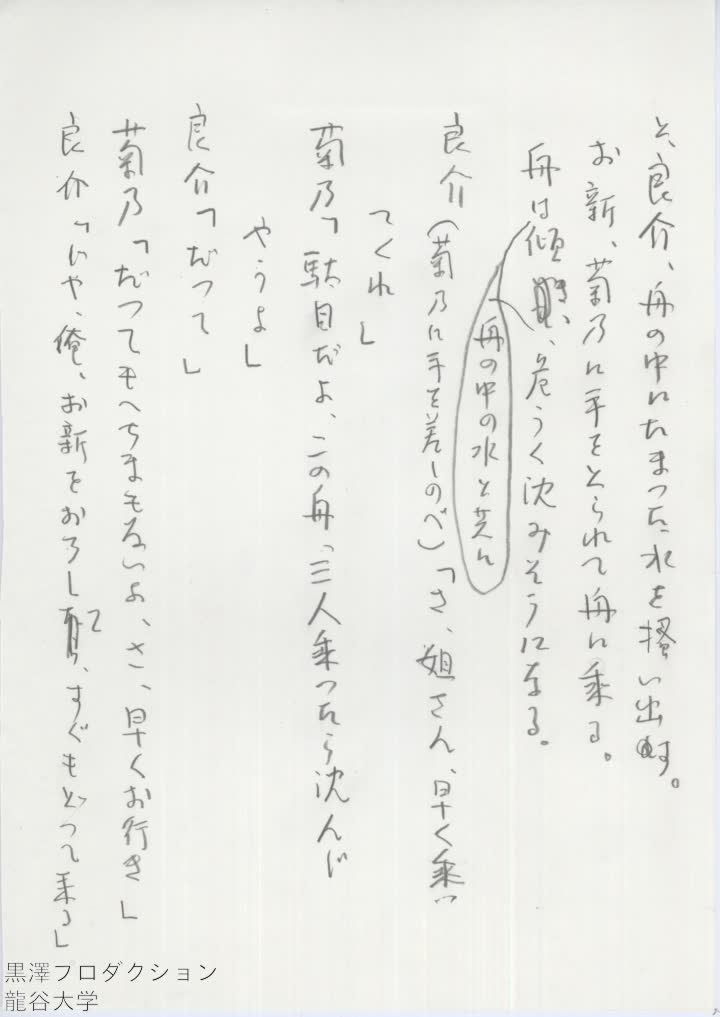 と、良介、舟の中にたまつた水を掻い出す。
お新、菊乃に手をとられて舟に乘る。
舟は傾き、危うく沈みそうになる。
舟の中の水と共に
良介(菊乃に手を差しのべ)「さ、姐さん、早く乘つ
てくれ」
菊乃「駄目だよ、この舟、三人乘つたら沈んじ
やうよ」
良介「だつて」
菊乃「だつてもへちまもないよ、さ、早くお行き」
良介「じや、俺、お新をおろして、すぐもどつて来る」
黒澤プロダクション
龍谷大学